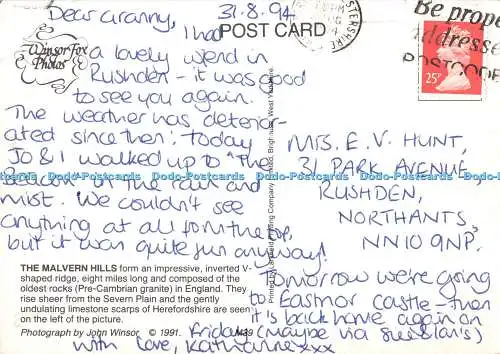 31.8.94
Dear Granny,
I had
a lovely w/end in
Rushden - it was good
to see you again.
The weather has deterior-
ated since then: Today
Jo & I walked up to "The
Beacon" in the rain and
mist. We couldn't see
anything at all from the top,
but it was quite fun anyway!
Tomorrow we're going
to Eastnor castle - then
it is back home again on
Friday (maybe via Sue & Ian's)
with love, Katherine xxx
MRS. E. V. HUNT,
31 PARK AVENUE,
RUSHDEN,
NORTHANTS
NN10 9NP.
POST CARD
Winsor Fox
Photos
Be prope
addresse
POSTCODE
25
THE MALVERN HILLS form an impressive, inverted V-
shaped ridge, eight miles long and composed of the
oldest rocks (Pre-Cambrian granite) in England. They
rise sheer from the Severn Plain and the gently
undulating limestone scarps of Herefordshire are seen
on the left of the picture.
Photograph by John Winsor © 1991. M39
Dodo-Postcards Dodo-Postcards Dodo-Postcards Dodo-Postcards Dodo-Postcards